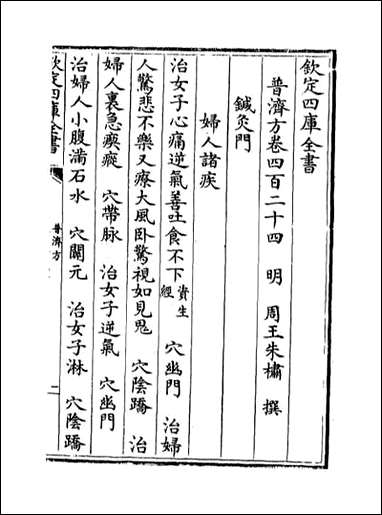 欽定四庫全書
普濟方卷四百二十四 明 周王朱橚 撰
鍼灸門
婦人諸疾
治女子心痛逆氣善吐食不下資生經 穴幽門 治婦
人驚悲不樂又療大風卧驚視如見鬼 穴陰蹻 治
婦人裏急瘈瘲 穴帶脉 治女子逆氣 穴幽門
治婦人小腹滿石水 穴關元 治女子淋 穴陰蹻
欽定四庫全書
普濟方